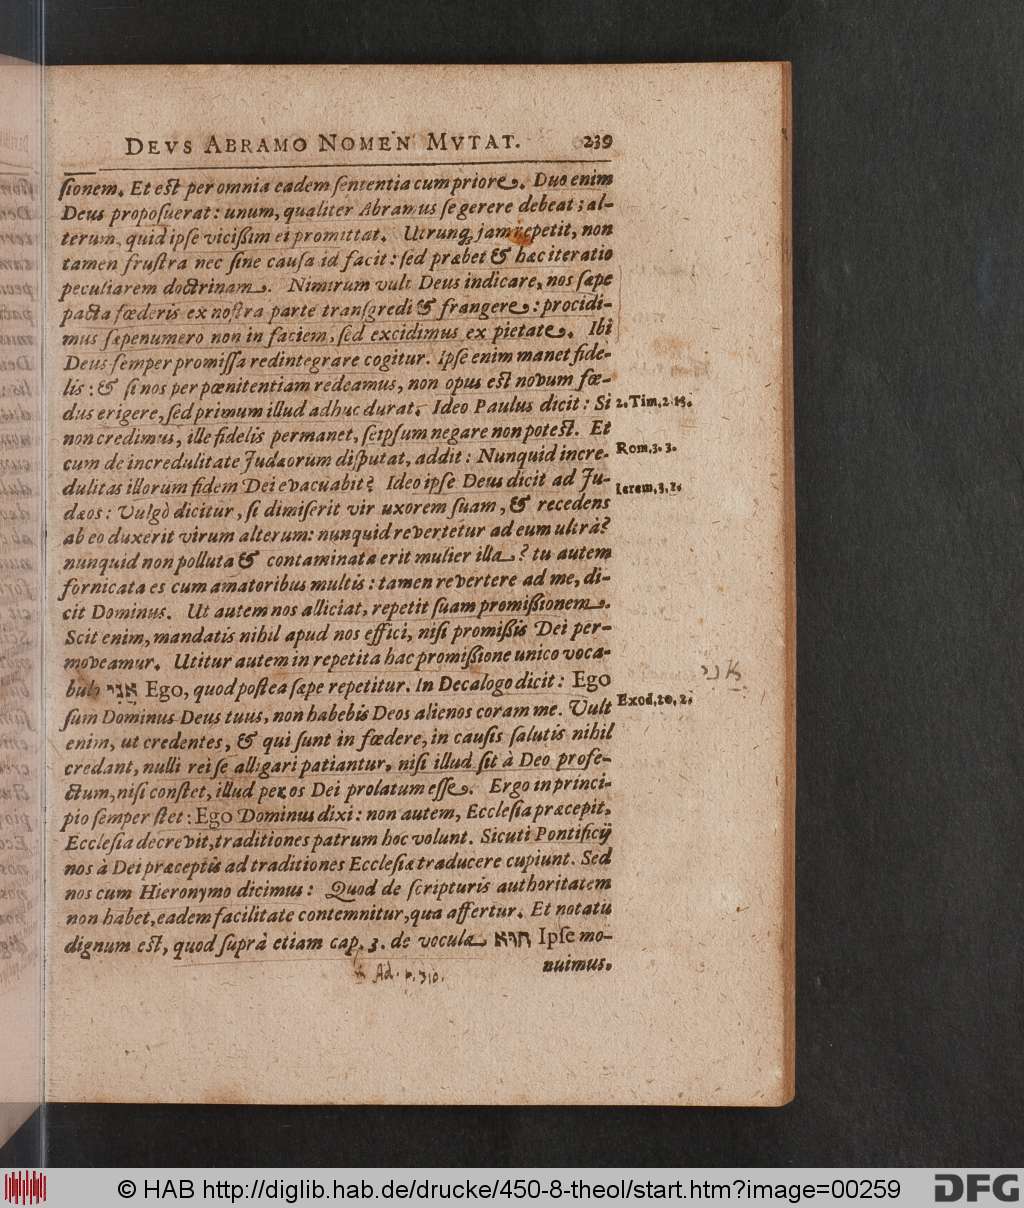 DEVS ABRAMO NOMEN MVTAT. 239
ſionem. Et eſt per omnia eadem ſententia cum priore. Duo enim
Deus propoſuerat: unum, qualiter Abramus ſe gerere debeat; al-
terum, quid ipſe viciſſim ei promittat. Utrunq; jam repetit, non
tamen fruſtra nec ſine cauſa id facit: ſed præbet & hæc iteratio
peculiarem doctrinam. Nimirum vult Deus indicare, nos ſæpe
pacta fœderis ex noſtra parte tranſgredi & frangere: procidi-
mus ſæpenumero non in faciem, ſed excidimus ex pietate. Ibi
Deus ſemper promiſſa redintegrare cogitur. Ipſe enim manet fide-
lis: & ſi nos per pœnitentiam redeamus, non opus eſt novum fœ-
dus erigere, ſed primum illud adhuc durat. Ideo Paulus dicit: Si 2. Tim. 2. 13.
non credimus, ille fidelis permanet, ſeipſum negare non poteſt. Et
cum de incredulitate Judæorum diſputat, addit: Nunquid incre- Rom. 3. 3.
dulitas illorum fidem Dei evacuabit? Ideo ipſe Deus dicit ad Ju- Ierem. 3. 2.
dæos: Vulgò dicitur, ſi dimiſerit vir uxorem ſuam, & recedens
ab eo duxerit virum alterum: nunquid revertetur ad eum ultrà?
nunquid non polluta & contaminata erit mulier illa? tu autem
fornicata es cum amatoribus multis: tamen revertere ad me, di-
cit Dominus. Ut autem nos alliciat, repetit ſuam promiſſionem.
Scit enim, mandatis nihil apud nos effici, niſi promiſſis Dei per-
moveamur. Utitur autem in repetita hac promiſſione unico voca-
bulo אֲנִי Ego, quod poſtea ſæpe repetitur. In Decalogo dicit: Ego
ſum Dominus Deus tuus, non habebis Deos alienos coram me. Vult Exod. 20. 2.
enim, ut credentes, & qui ſunt in fœdere, in cauſis ſalutis nihil
credant, nulli rei ſe alligari patiantur, niſi illud ſit à Deo profe-
ctum, niſi conſtet, illud per os Dei prolatum eſſe. Ergo in princi-
pio ſemper ſtet: Ego Dominus dixi: non autem, Eccleſia præcepit,
Eccleſia decrevit, traditiones patrum hoc volunt. Sicuti Pontificij
nos à Dei præceptis ad traditiones Eccleſiæ traducere cupiunt. Sed
nos cum Hieronymo dicimus: Quod de ſcripturis authoritatem
non habet, eadem facilitate contemnitur, qua affertur. Et notatu
dignum eſt, quod ſuprà etiam cap. 3. de vocula הוא Ipſe mo-
nuimus.
Ad. p. 310.
© HAB http://diglib.hab.de/drucke/450-8-theol/start.htm?image=00259
DFG